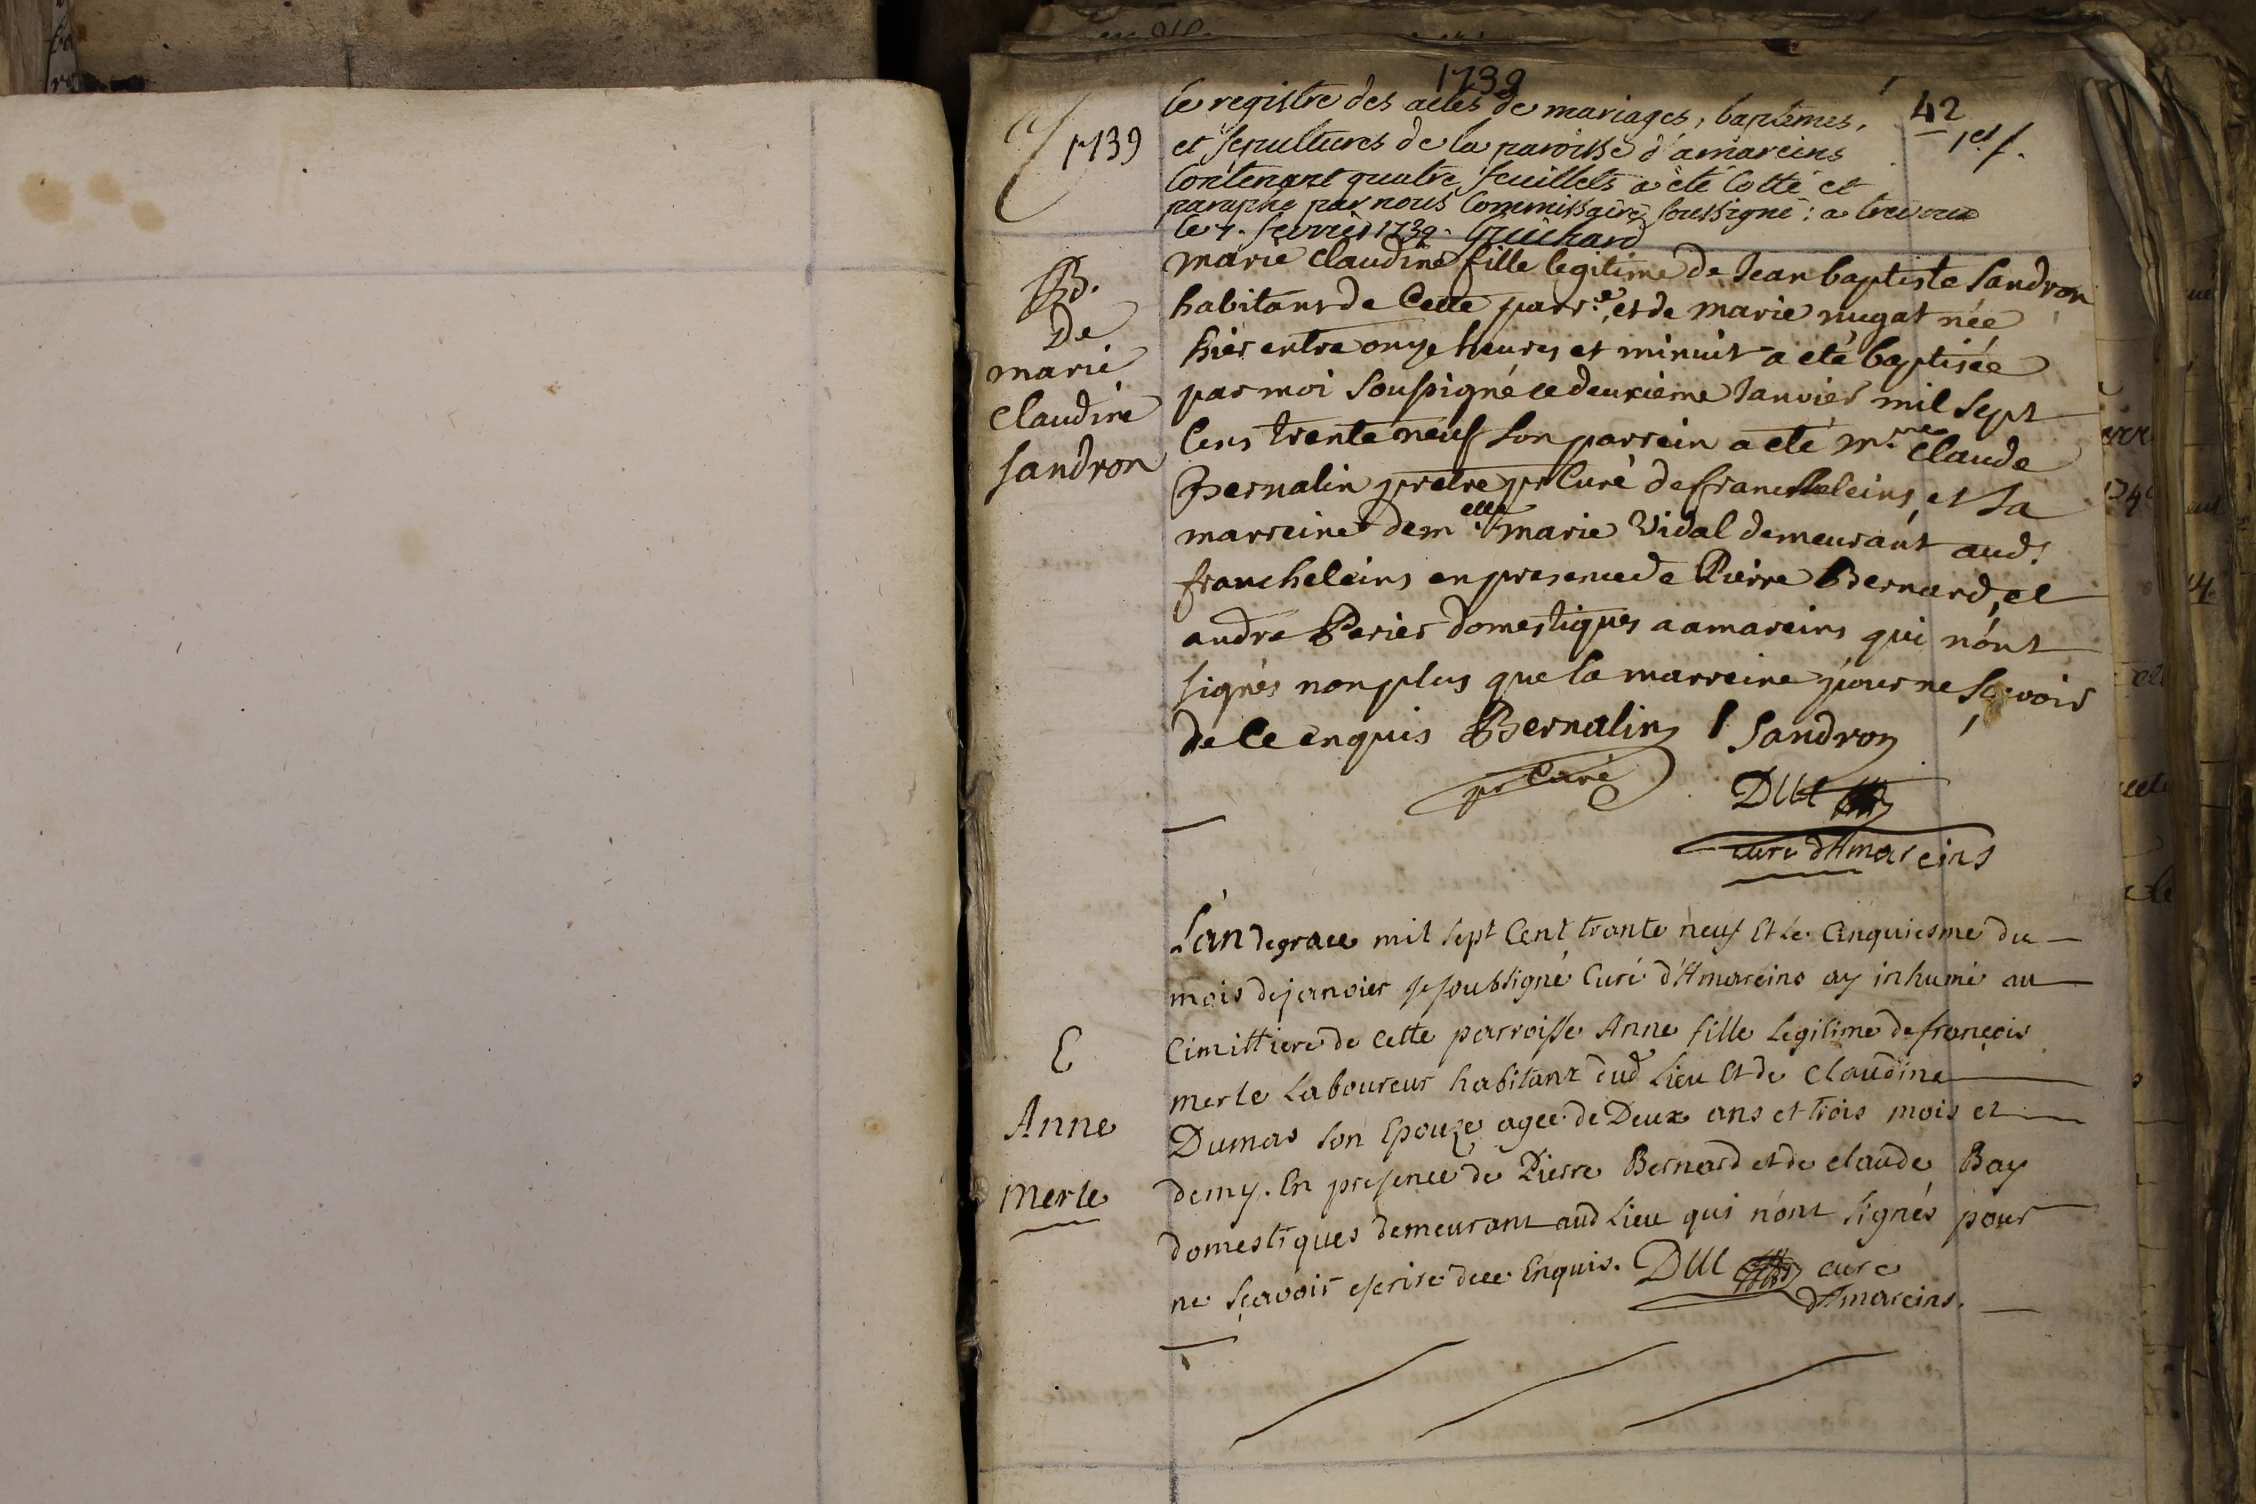 1739
42
1er f.
1739
le registre des actes de mariages, baptemes,
et sepultures de la paroisse d'amareins
Contenant quatre feuillets a été Cotté et
paraphé par nous Commissaire soussigné: a trevoux
le 7. fevrier 1739. Guichard
B.
De
marie
Claudine
Sandron
marie Claudine fille legitime de Jean baptiste Sandron
habitant de Cette parr.e, et de marie nugat née
hier entre onze heures et minuit a été baptisée
par moi Soussigné ce deuxieme Janvier mil Sept
Cens trente neuf Son parrein a eté m.re Claude
Bernalin pretre pr Curé de francheleins, et Sa
marreine dem.elle marie Vidal demeurant aud.
francheleins en presence de Pierre Bernard, et
andre Perier domestiques a amareins qui n'ont
signés non plus que la marreine pour ne Scavoir
de Ce enquis Bernalin Sandron
pr Curé
curé d'Amareins
E
Anne
Merle
L'an de grace mil sept Cent trante neuf Et le Cinquiesme du
mois de janvier je soubsigné Curé d'Amareins ay inhumé au
Cimittiere de cette parroisse Anne fille Legitime de françois
merle Laboureur habitant dud Lieu Et de Claudine
Dumas son Epouze agée de Deux ans et trois mois et
demy. En presence de Pierre Bernard et de claude Bay
domestiques demeurant aud Lieu qui n'ont signés pour
ne sçavoir escrire de ce Enquis. curé
d'Amareins.